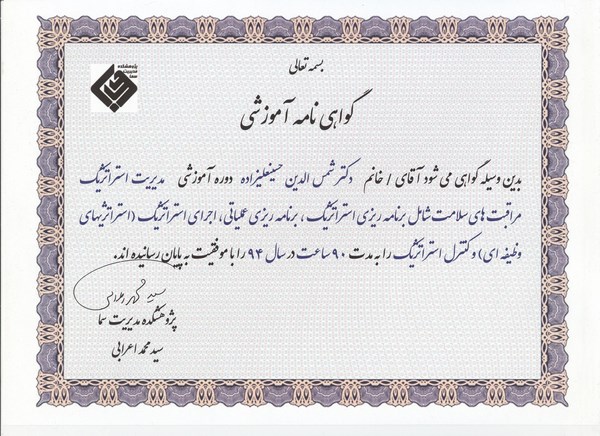 پژوهشکده
مدیریت
سما
بسمه تعالی
گواهی نامه آموزشی
بدین وسیله گواهی می شود آقای / خانم دکتر شمس الدین حسینعلیزاده دوره آموزشی مدیریت استراتژیک
مراقبت های سلامت شامل برنامه ریزی استراتژیک، برنامه ریزی عملیاتی، اجرای استراتژیک (استراتژیهای
وظیفه ای) و کنترل استراتژیک را به مدت ۹۰ ساعت در سال ۹۴ را با موفقیت به پایان رسانیده اند.
پژوهشکده مدیریت سما
سید محمد اعرابی